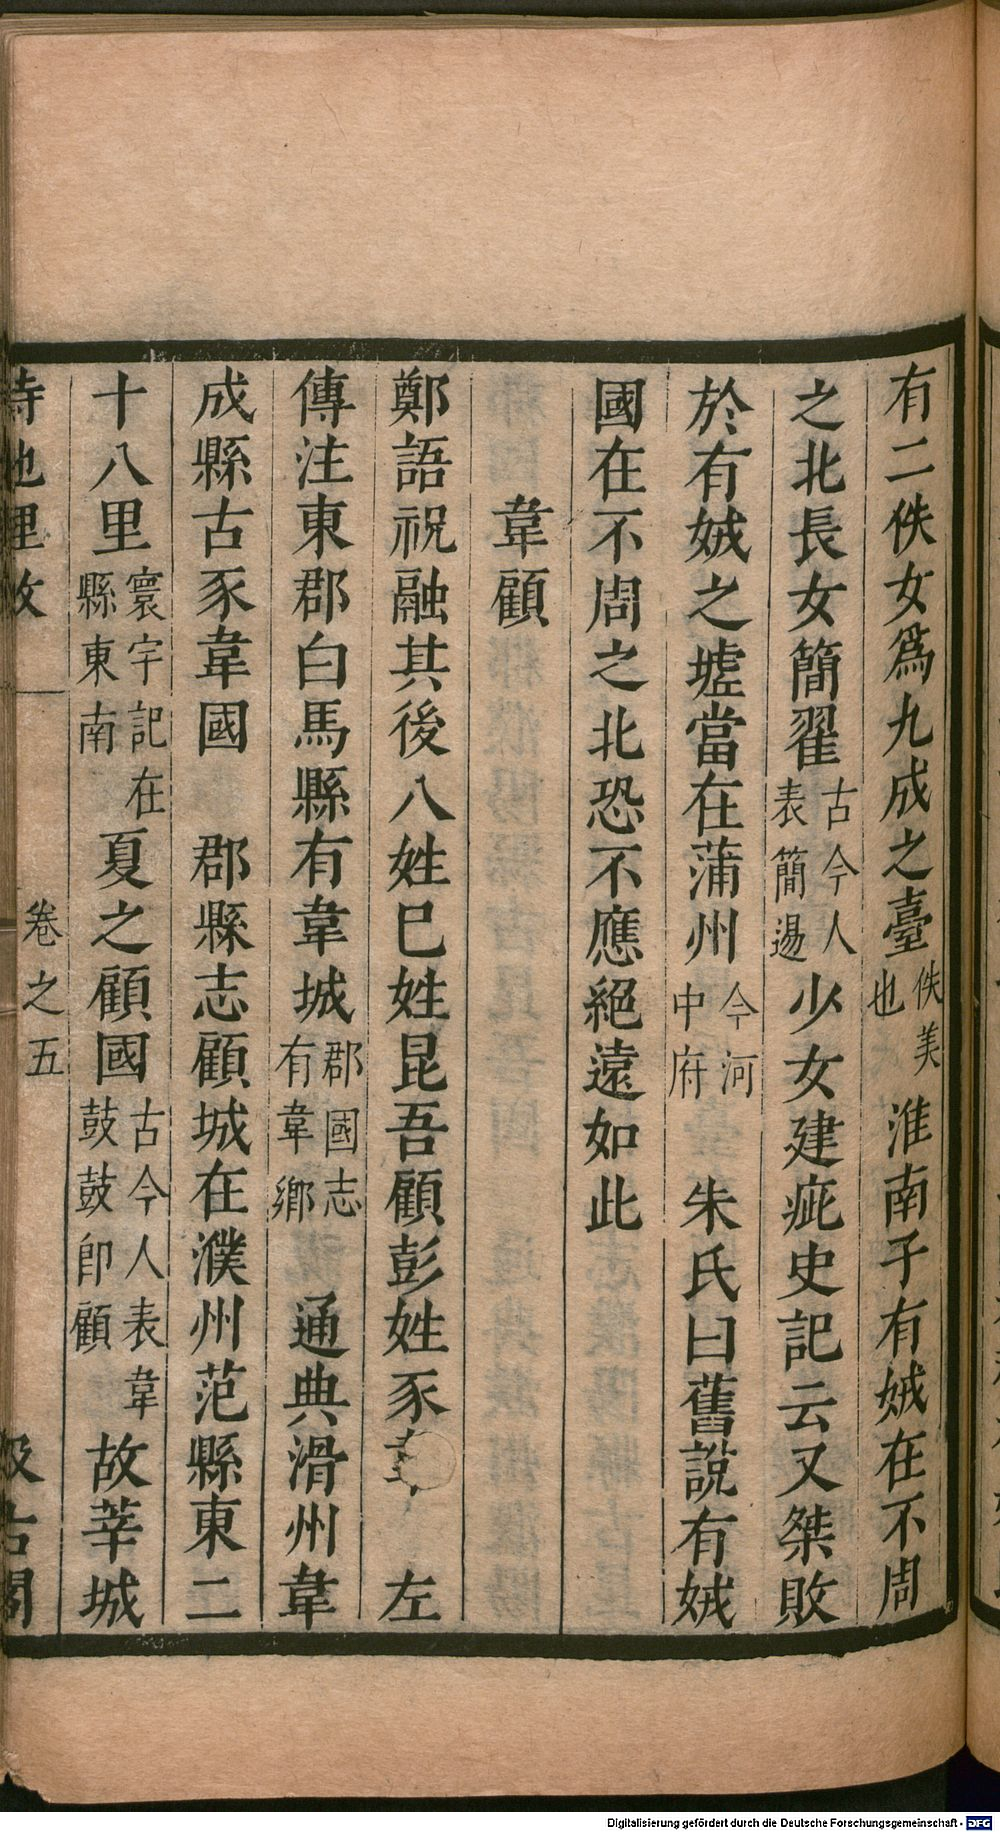 有二佚女爲九成之臺佚美也 淮南子有娀在不周
之北長女簡翟古今人表簡逷少女建疵史記云又桀敗
於有娀之墟當在蒲州今河中府 朱氏曰舊說有娀
國在不周之北恐不應絕遠如此
韋顧
鄭語祝融其後八姓巳姓昆吾顧彭姓豕韋 左
傳注東郡白馬縣有韋城郡國志有韋鄉 通典滑州韋
成縣古豕韋國 郡縣志顧城在濮州范縣東二
十八里寰宇記在縣東南夏之顧國古今人表韋鼓鼓卽顧故莘城
詩地理攷 卷之五 汲古閣
Digitalisierung gefördert durch die Deutsche Forschungsgemeinschaft - DFG